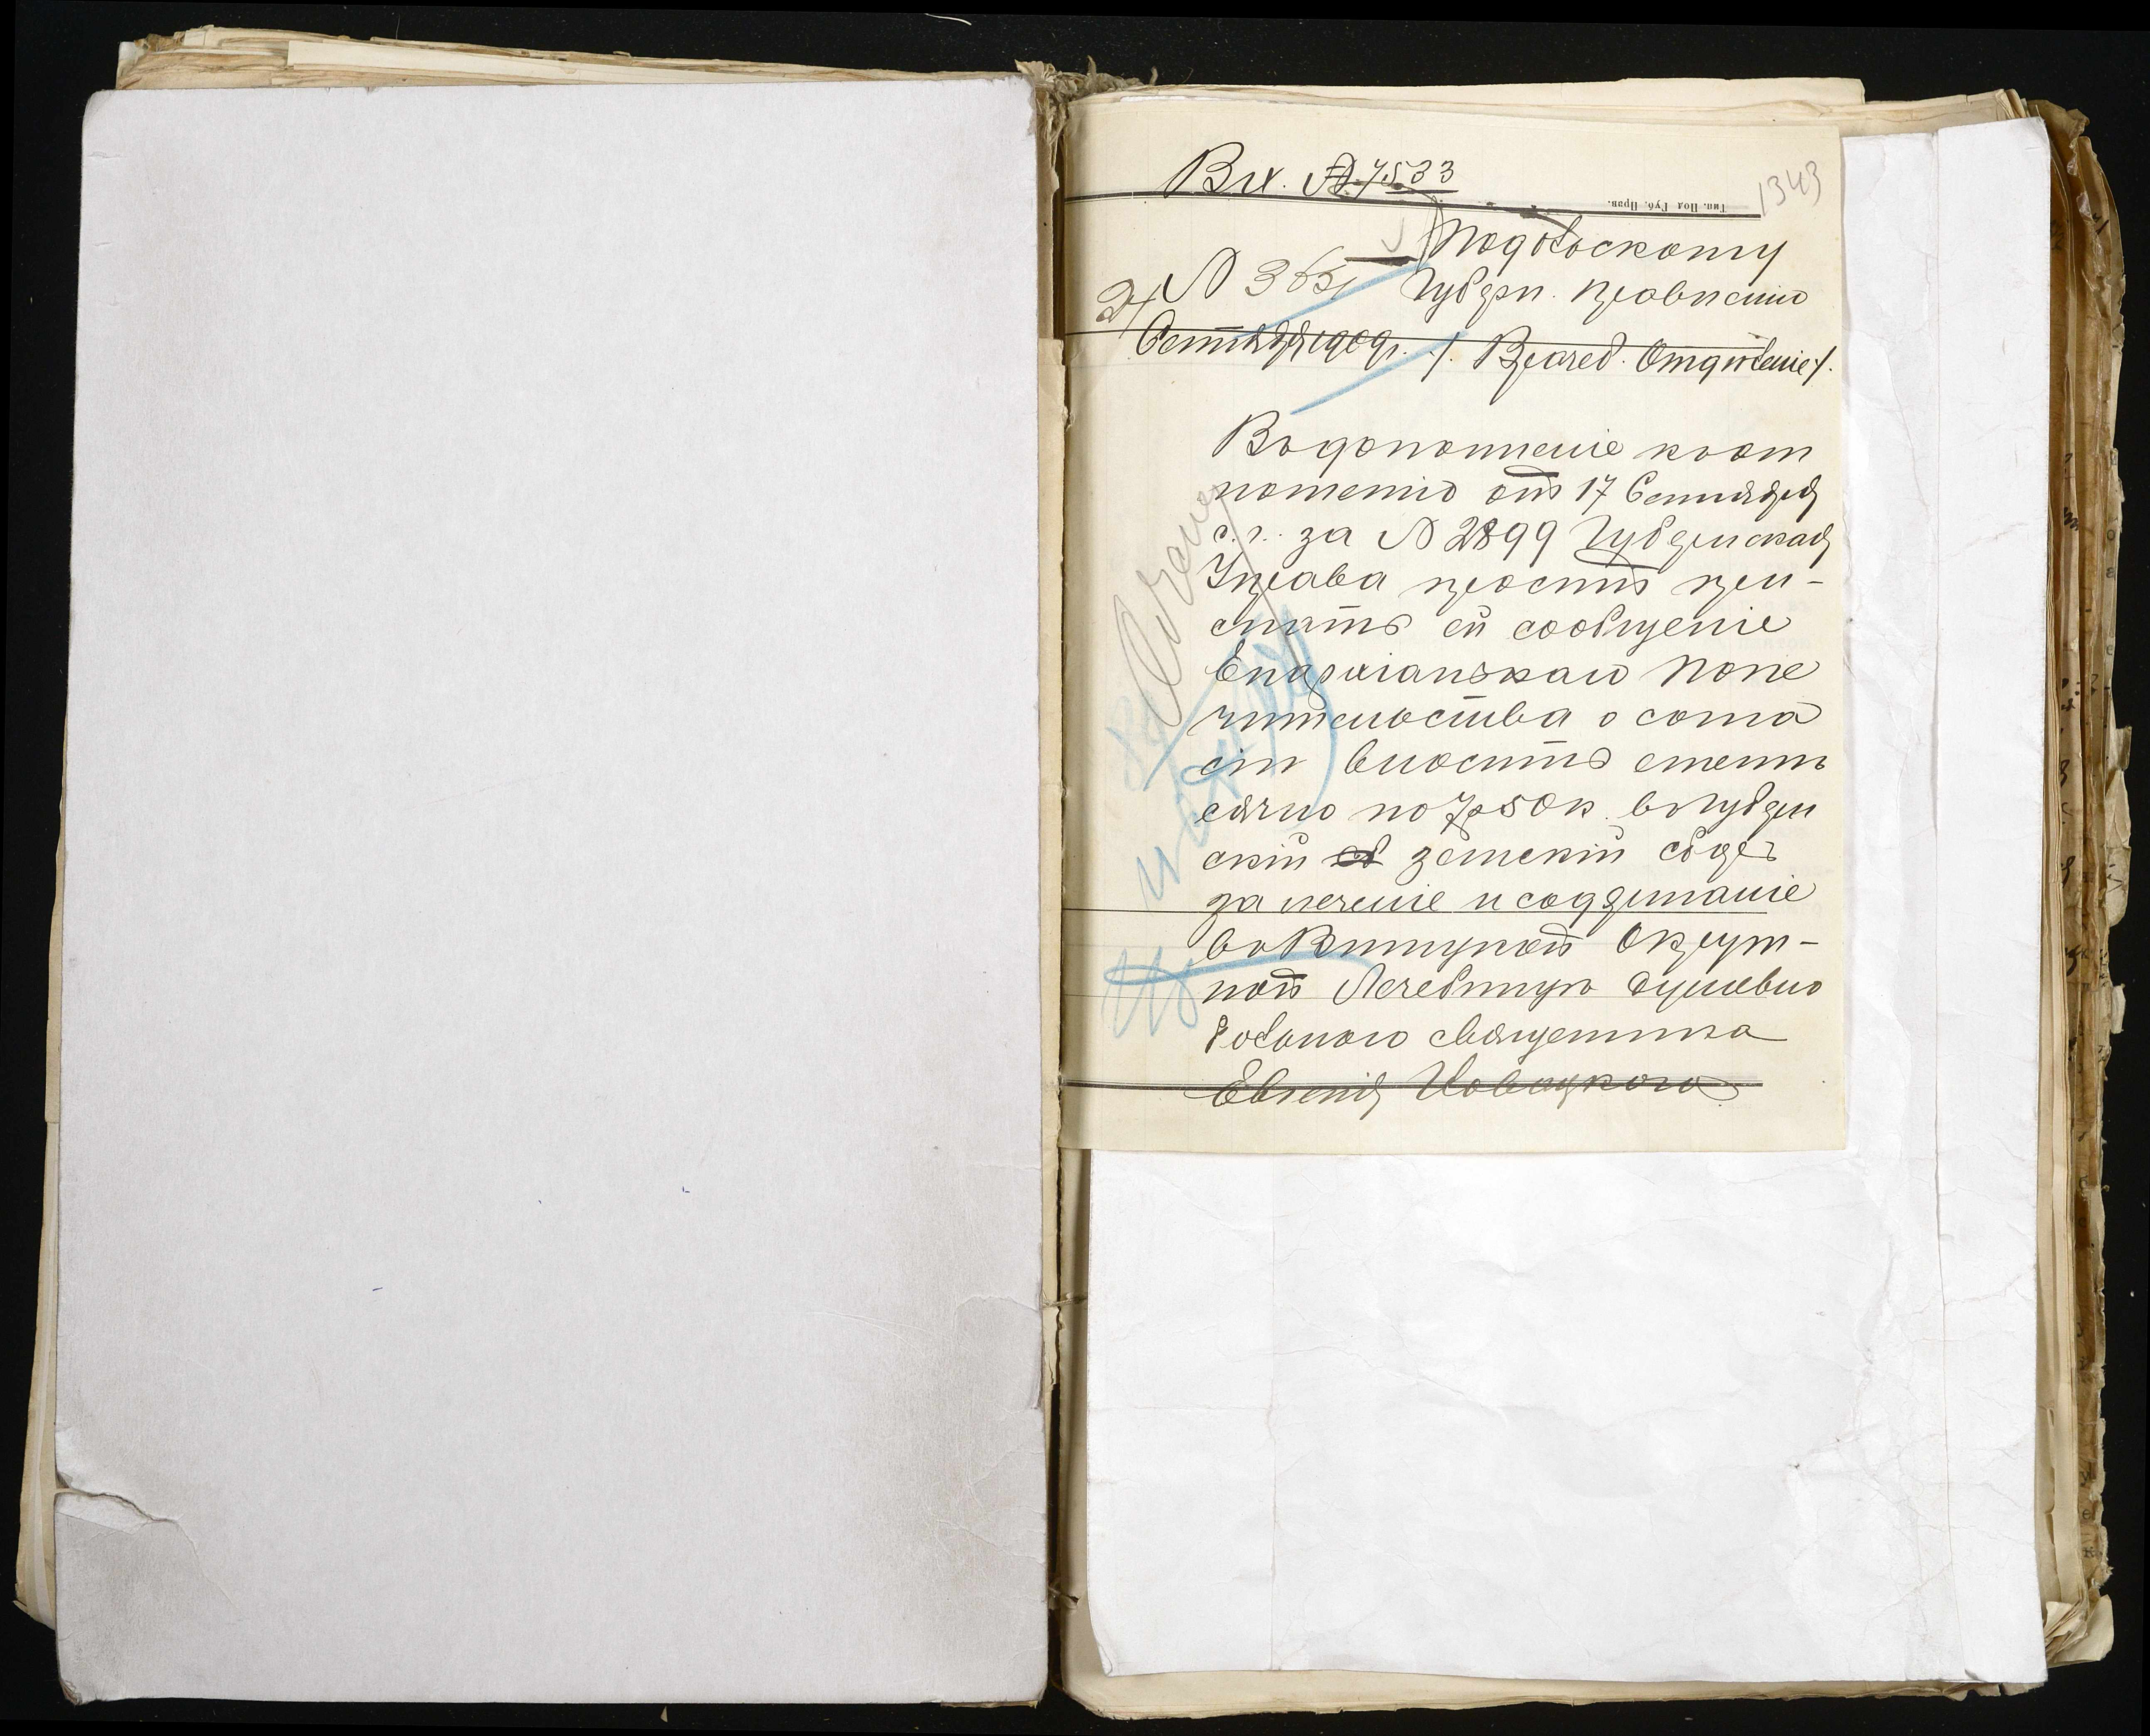 Вх. № 7533
1343
Тип. Под Губ. Прав.
Подольскому
№ 3651 Губерн. Правленію
24 Сентября 1909 г. /. Врачеб. Отдѣленіе/.
Въ дополненіе къ от
ношенію отъ 17 Сентября
с. г. за № 2899 Губернская
Управа проситъ при-
слать ей сообщеніе
Епархіальнаго Попе
чительства о согла
сіи вносить ежемѣ
сячно по 7 р 50 к. въ губерн
скій земскій сборъ
за леченіе и содержаніе
въ Винницкой Окруж-
ной Лечебницѣ душевно
больного священника
Евгенія Новицкого